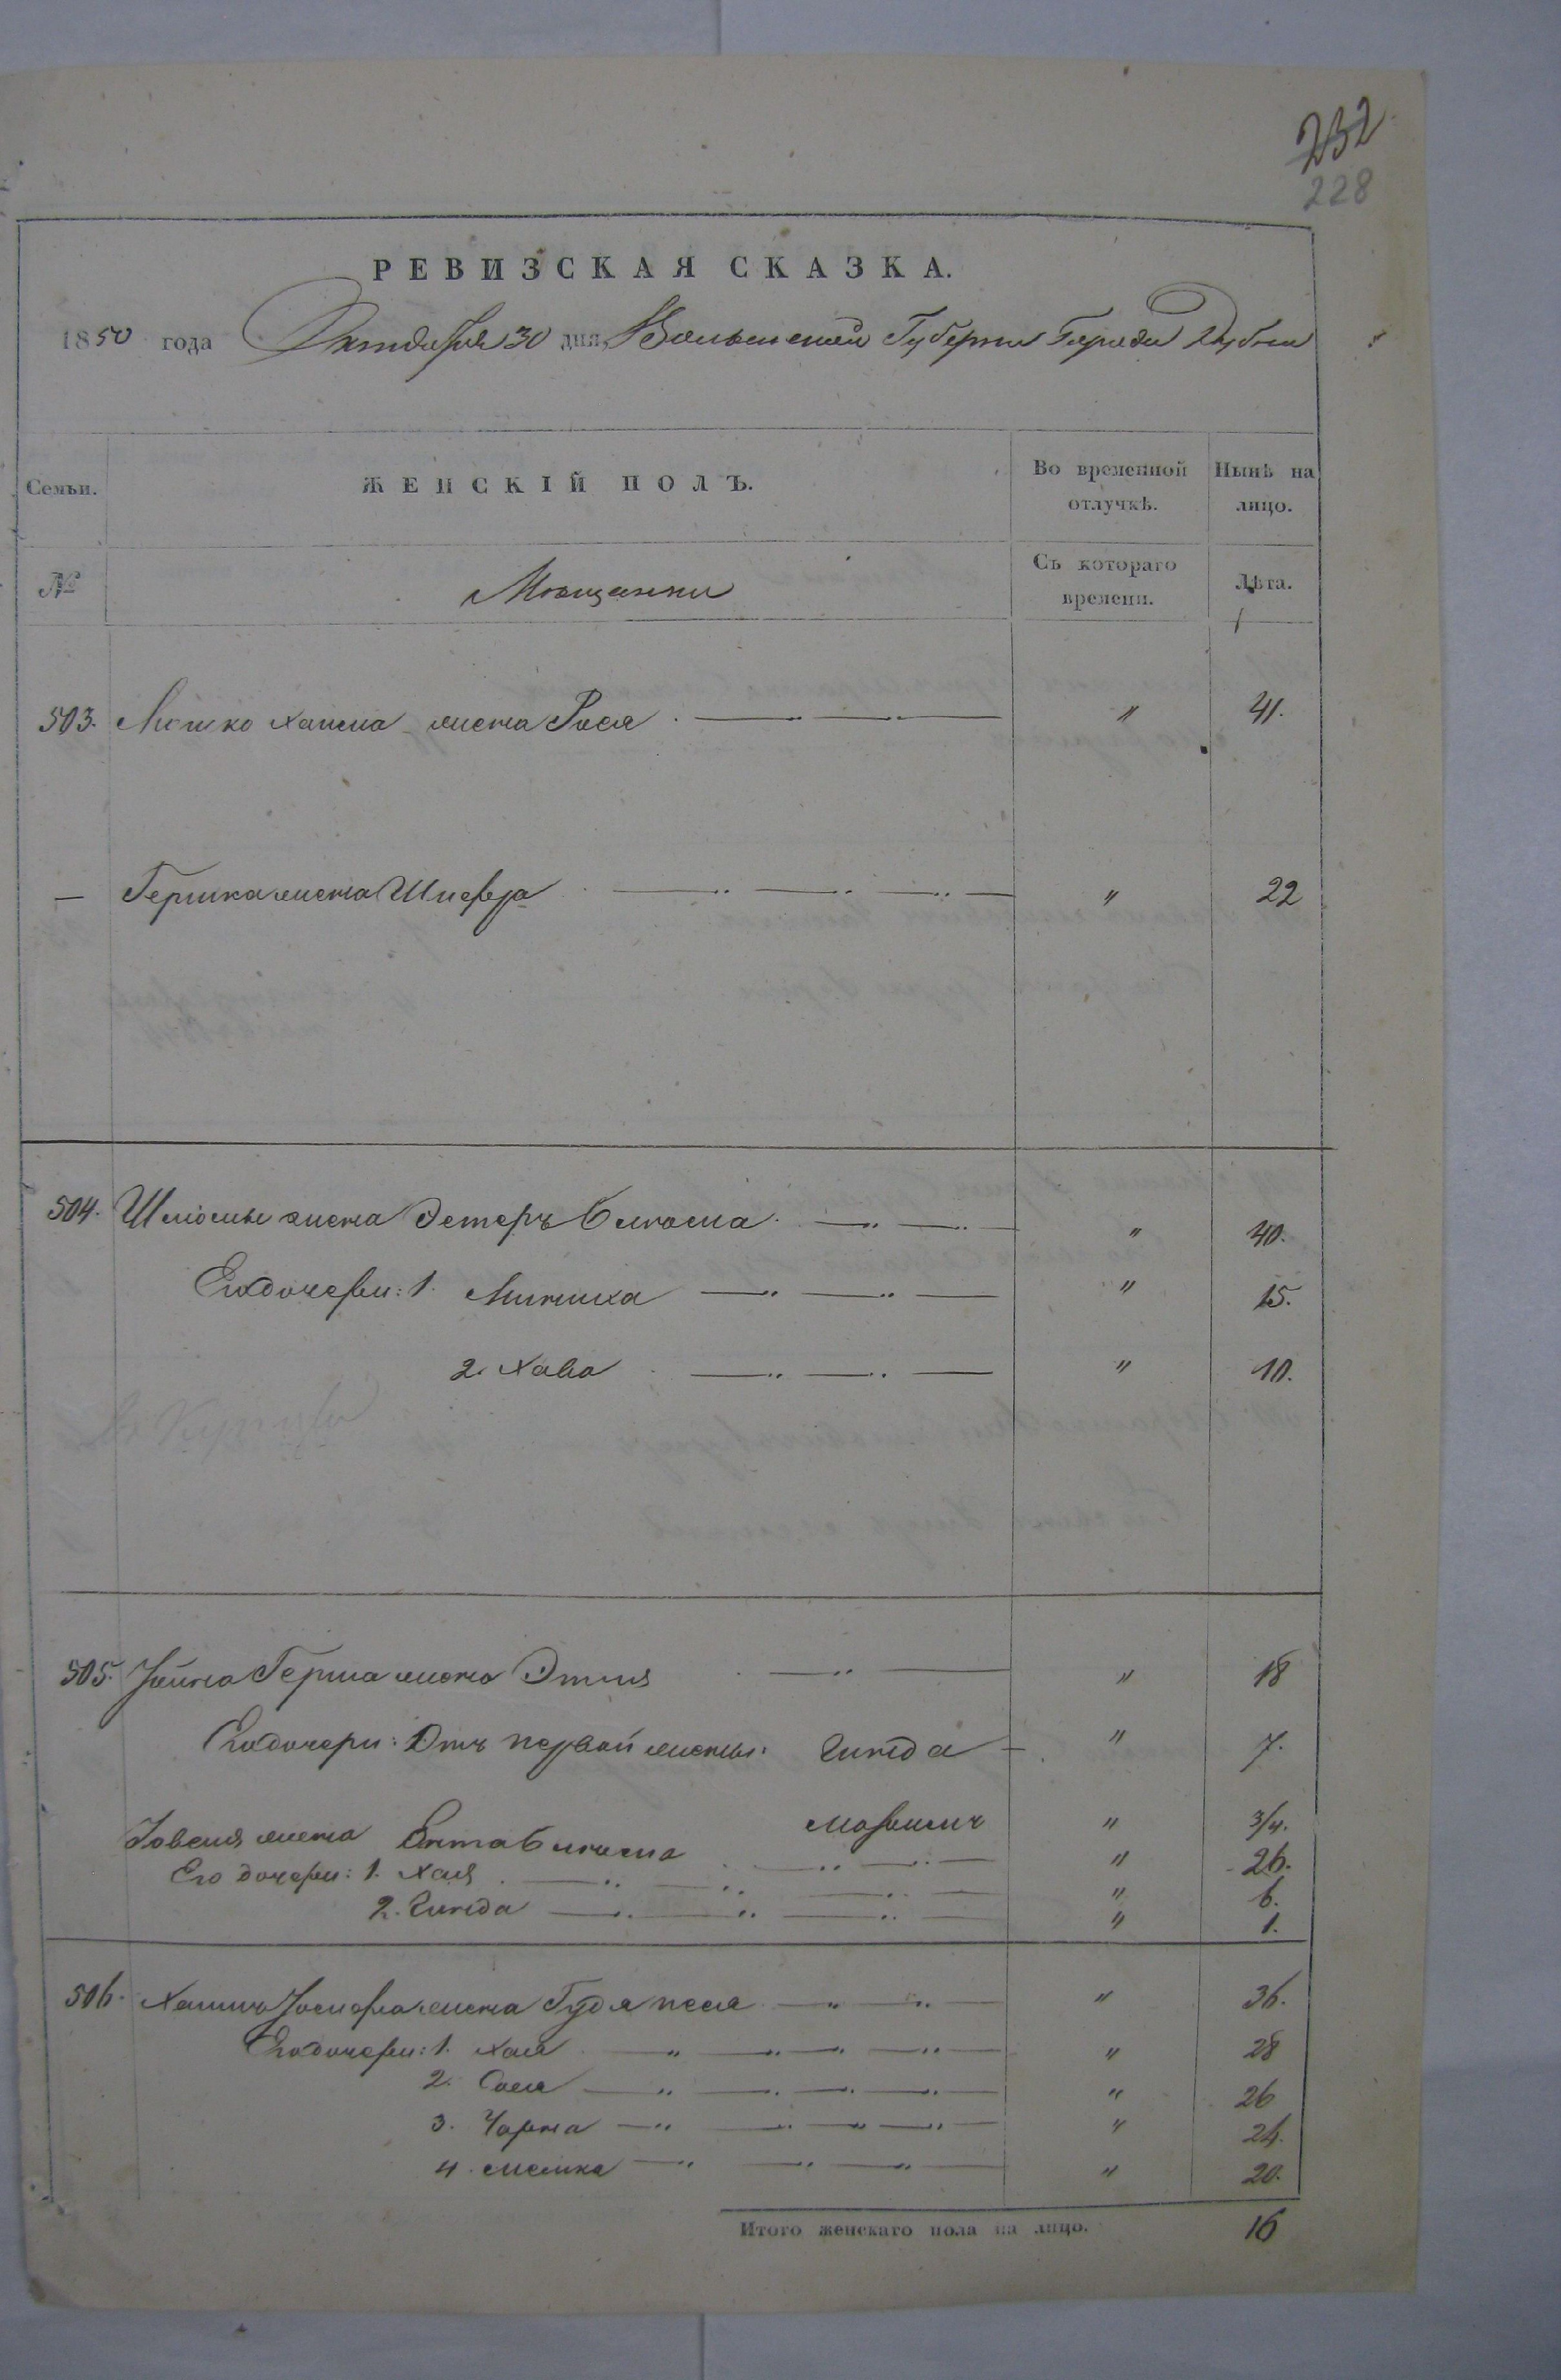 232
228
РЕВИЗСКАЯ СКАЗКА.
1850 года Октября 30 дня, Волынской Губернии Города Дубна
Семьи. ЖЕНСКІЙ ПОЛЪ. Во временной отлучкѣ. Нынѣ на лицо.
№ Мещанки Съ котораго времени. Лѣта.
503. Мошко Хаима жена Рося " 41.
— Гершка жена Шифра " 22
504. Шліомы жена Эстеръ " 40.
Его дочери: 1. " 15.
2. Хава " 10.
505. Герша жена Этля " 18
Его дочери: Отъ первой жены: Гитля " 7.
" 3/4.
жена " 26.
Его дочери: 1. Хая " 6.
2. " 1.
506. Хаимъ Іосифа жена Гудя Песя " 36.
Его дочери: 1. Хая " 28
2. Сося " 26
3. Чарна " 24.
4. " 20.
Итого женскаго пола на лицо. 16